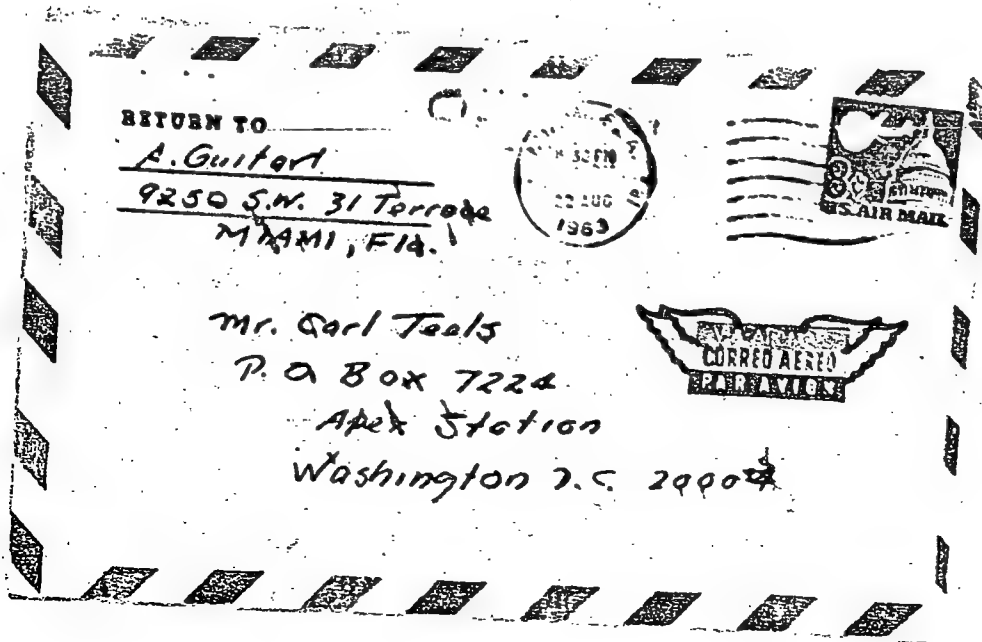 RETURN TO
A. Guitart
9250 S.W. 31 Terrace
MIAMI, Fla.
8 30 PM
22 AUG
1963
U.S. AIR MAIL
VIA AIR MAIL
CORREO AEREO
PAR AVION
Mr. Carl Teels
P.O Box 7224
Apex Station
Washington D.C. 20004